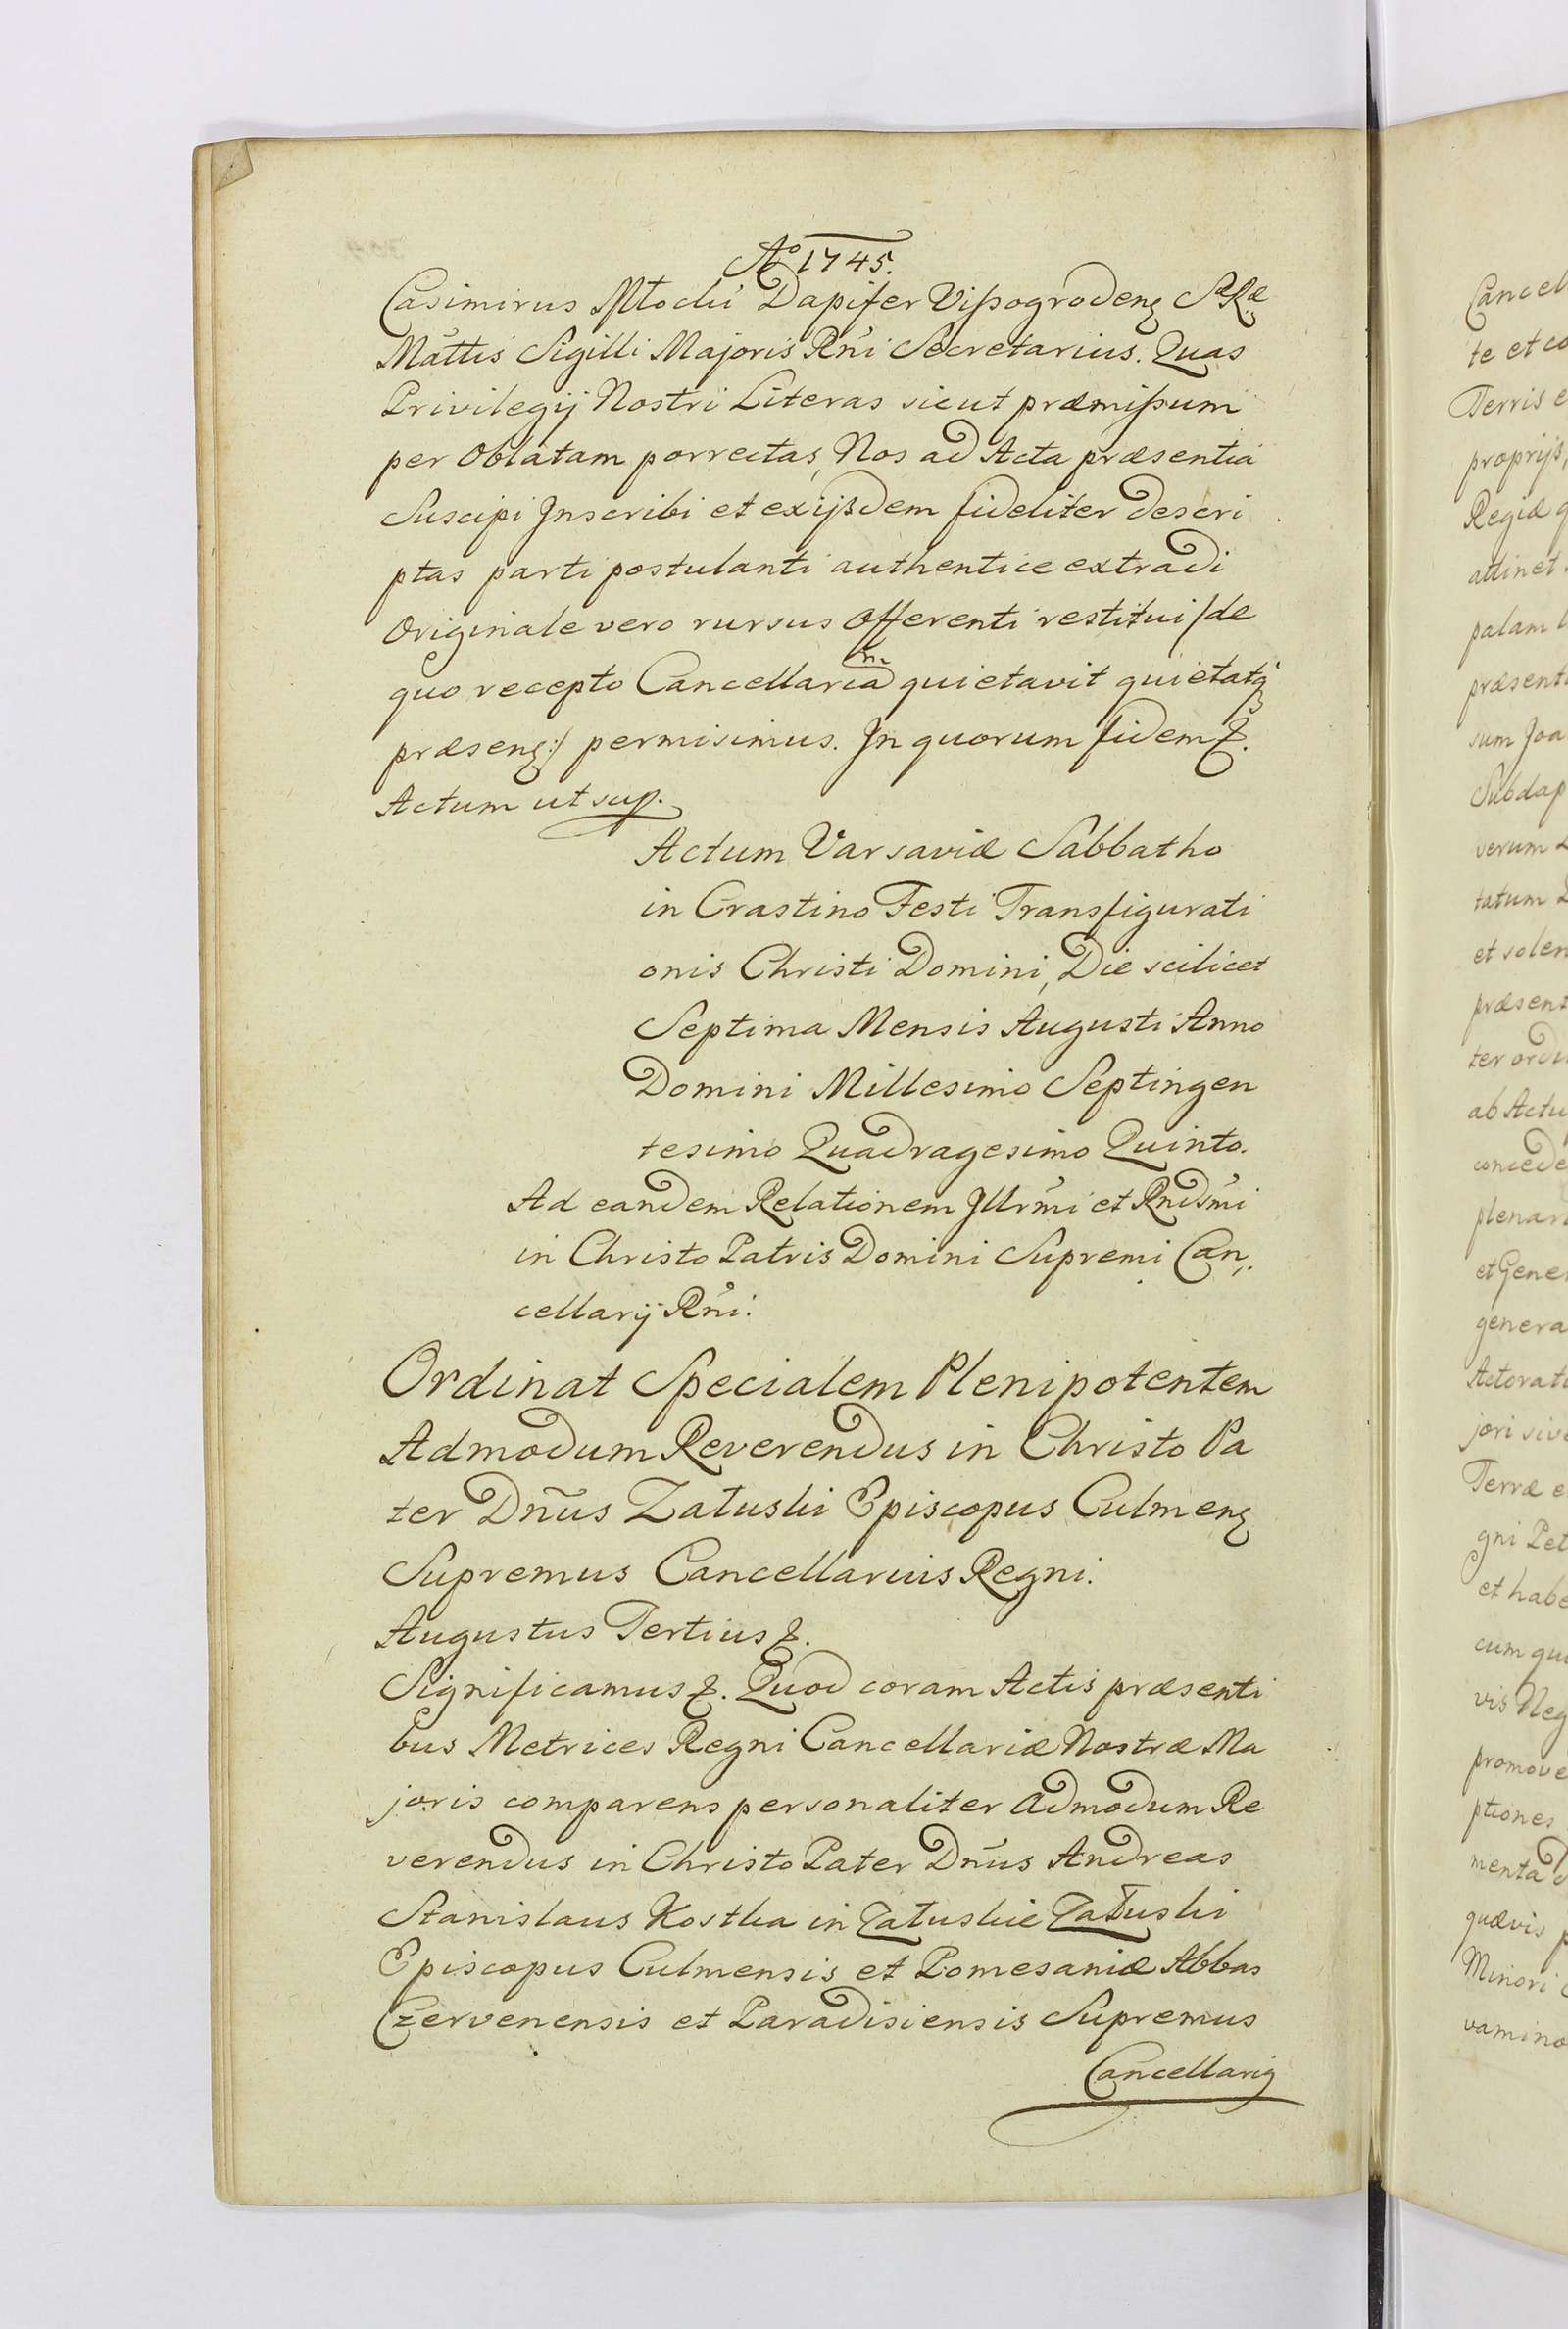 Aº 1745.
Casimirus Młocki Dapifer Vissogrodeng SRæ
Mattis Sigilli Majoris Rni Secretarius. Quas
Privilegij Nostri Literas sicut præmissum
per Oblatam porrectas, Nos ad Acta præsentia
Suscipi Jnscribi et exijsdem fideliter descri
ptas parti postulanti authentice extradi
Originale vero rursus Offerenti restitui /de
quo recepto Cancellariam quietavit quietatq
præseng:/ permisimus. Jn quorum fidem &.
Actum ut sup.
Actum Varsaviæ Sabbatho
in Crastino Festi Transfigurati
onis Christi Domini, Die scilicet
Septima Mensis Augusti Anno
Domini Millesimo Septingen
tesimo Quadragesimo Quinto.
Ad eandem Relationem Jllrmi et Rndsmi
in Christo Patris Domini Supremi Can,,
cellarij Rni.
Ordinat Specialem Plenipotentem
Admodum Reverendus in Christo Pa
ter Dnus Załuski Episcopus Culmeng
Supremus Cancellarius Regni.
Augustus Tertius &.
Significamus &. Quod coram Actis præsenti
bus Metrices Regni Cancellariæ Nostræ Ma
joris comparens personaliter Admodum Re
verendus in Christo Pater Dnus Andreas
Stanislaus Kostka in Załuskie Załuski
Episcopus Culmensis et Pomesaniæ Abbas
Czervenensis et Paradisiensis Supremus
Cancellarig
Cancel
te et co
Terris e
proprijs,
Regiæ q
attinet
palam l
præsenti
sum Joa
Subdap
verum
tatum
et solen
præsent
ter ordi
ab Actu
concede
plenari
et Gene
genera
Actorat
jori sive
Terræ e
gni Pet
et habe
cum qui
vis Neg
promove
ptiones
menta d
quævis p
Minori
vamina